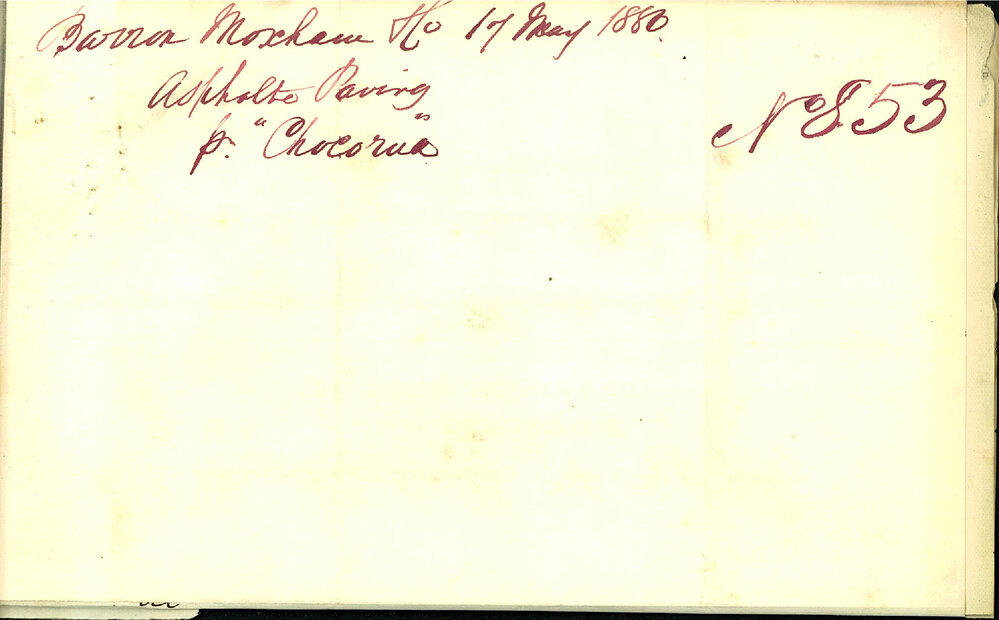 Barron Moxham & Co 17 May 1880.
Asphalte Paving
p. "Chocorua"
No 853